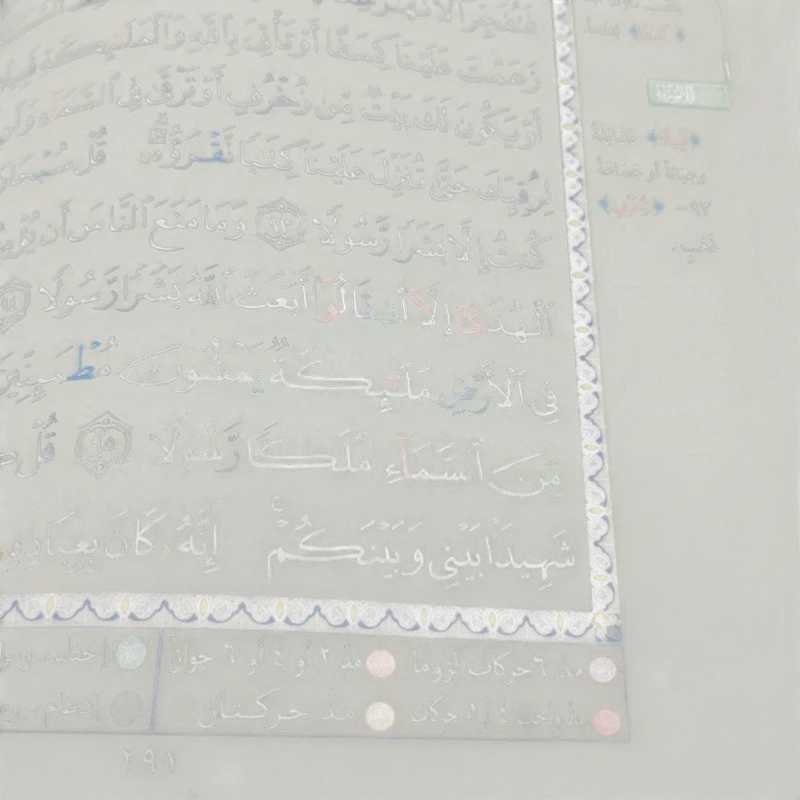 فَتُفَجِّرَ ٱلْأَنْهَٰرَ
زَعَمْتَ عَلَيْنَا كِسَفًا أَوْ تَأْتِىَ بِٱللَّهِ وَٱلْمَلَٰٓئِكَةِ
أَوْ يَكُونَ لَكَ بَيْتٌ مِّن زُخْرُفٍ أَوْ تَرْقَىٰ فِى ٱلسَّمَآءِ وَلَن
لِرُقِيِّكَ حَتَّىٰ تُنَزِّلَ عَلَيْنَا كِتَٰبًا نَّقْرَؤُهُۥ قُلْ سُبْحَانَ
كُنتُ إِلَّا بَشَرًا رَّسُولًا ٩٣ وَمَا مَنَعَ ٱلنَّاسَ أَن
ٱلْهُدَىٰٓ إِلَّآ أَن قَالُوٓا۟ أَبَعَثَ ٱللَّهُ بَشَرًا رَّسُولًا
فِى ٱلْأَرْضِ مَلَٰٓئِكَةٌ يَمْشُونَ مُطْمَئِنِّينَ
مِّنَ ٱلسَّمَآءِ مَلَكًا رَّسُولًا ٩٥ قُلْ
شَهِيدًۢا بَيْنِى وَبَيْنَكُمْ ۚ إِنَّهُۥ كَانَ بِعِبَادِهِۦ
الإسراء
﴿قبيلا﴾ مقابلة
وعياناً أو جماعة
٩٣- ﴿زخرف﴾
ذهب.
مدّ ٦ حركات لزوماً
مدّ ٢ أو ٤ أو ٦ جوازاً
مدّ واجب ٤ أو ٥ حركات
مدّ حركتان
إخفاء،
إدغام،
٢٩١